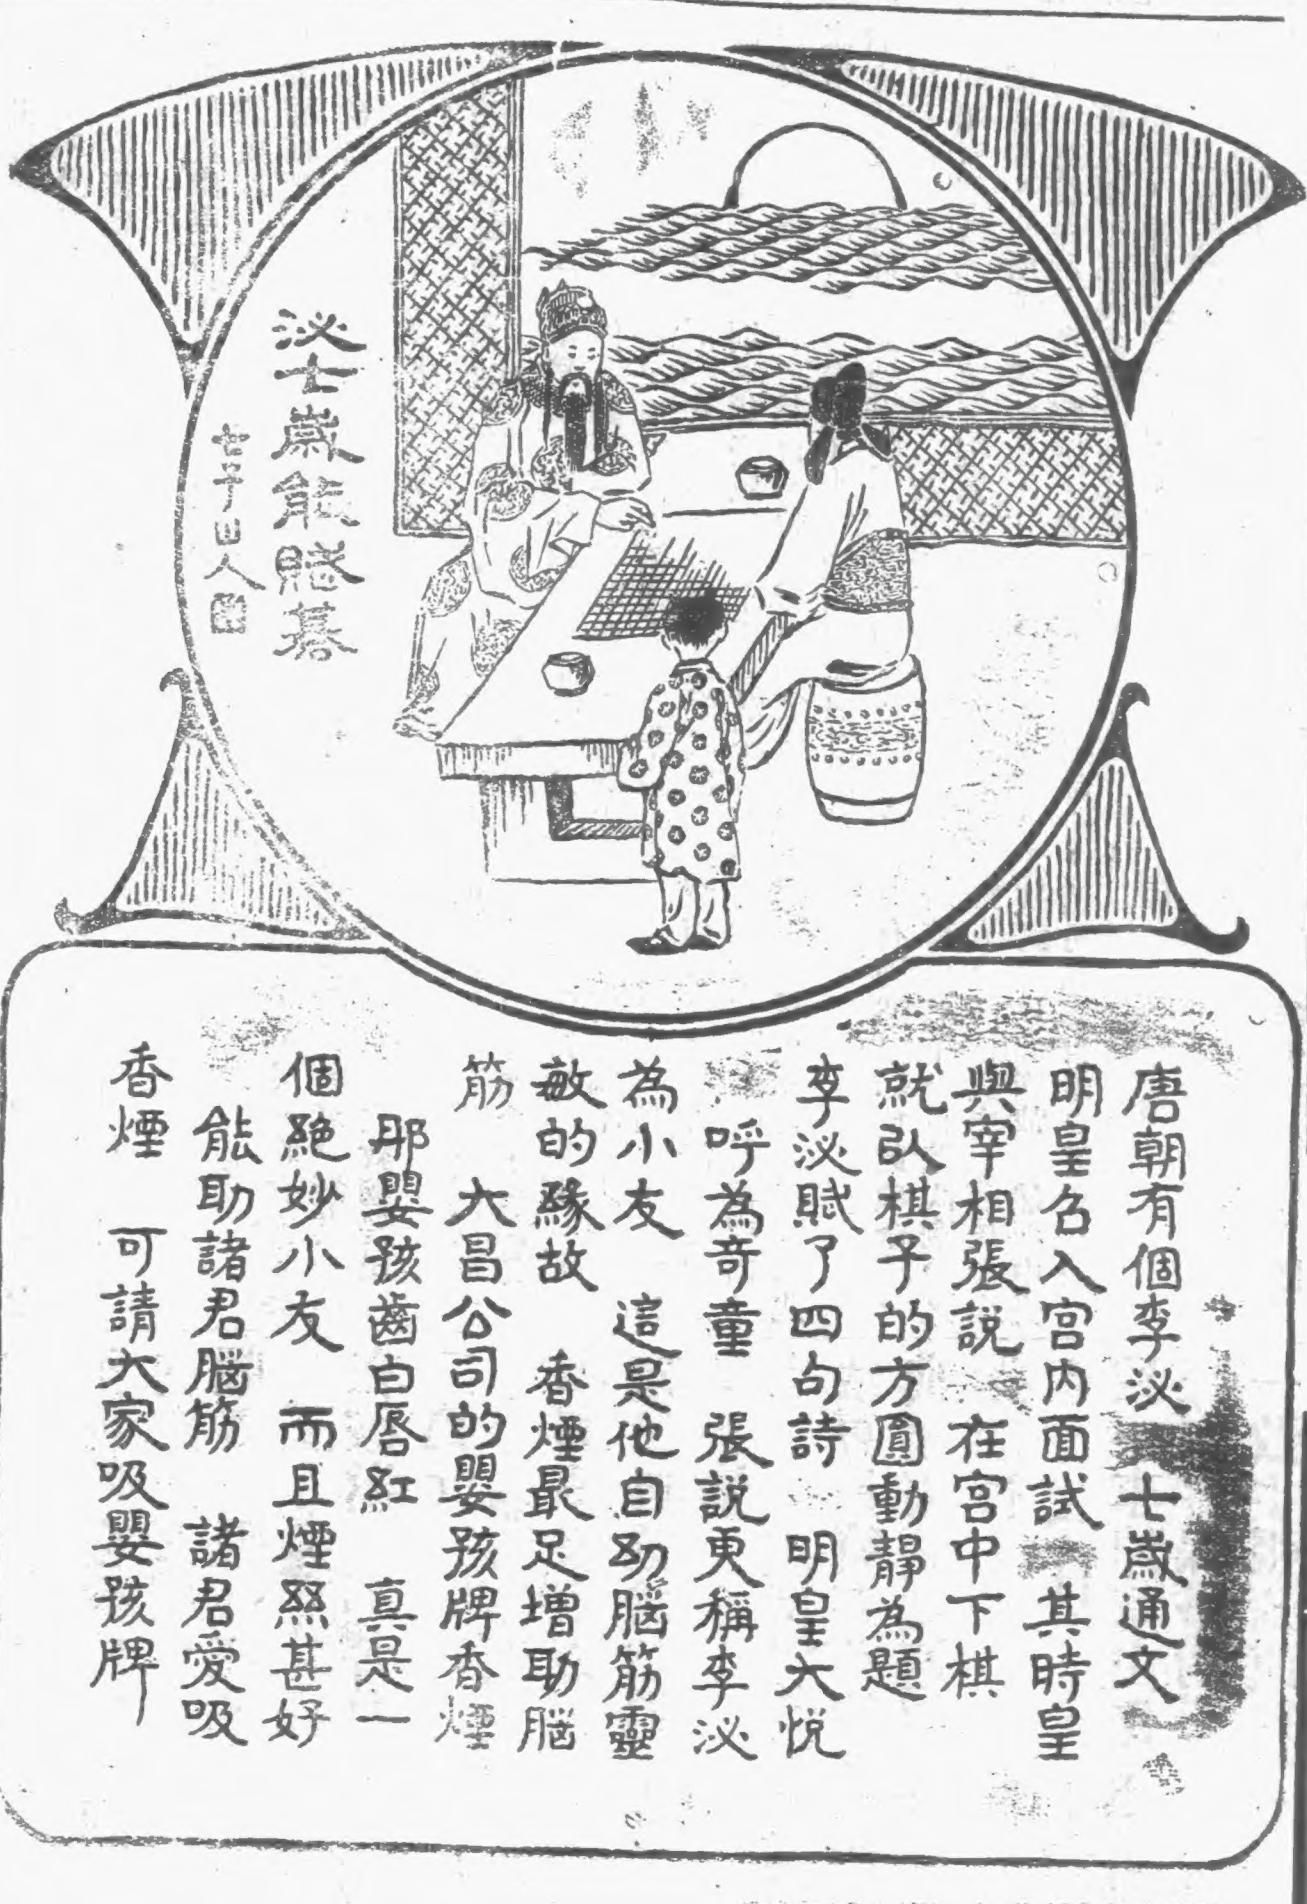 泌七歲能賦碁
七子山人
唐朝有個李泌 七歲通文
明皇召入宮内面試 其時皇
與宰相張説 在宮中下棋
就以棋子的方圓動靜為題
李泌賦了四句詩 明皇大悦
呼為奇童 張説更稱李泌
為小友 這是他自幼腦筋靈
敏的緣故 香煙最足增助腦
筋 大昌公司的嬰孩牌香煙
那嬰孩齒白唇紅 真是一
個絶妙小友 而且煙絲甚好
能助諸君腦筋 諸君愛吸
香煙 可請大家吸嬰孩牌